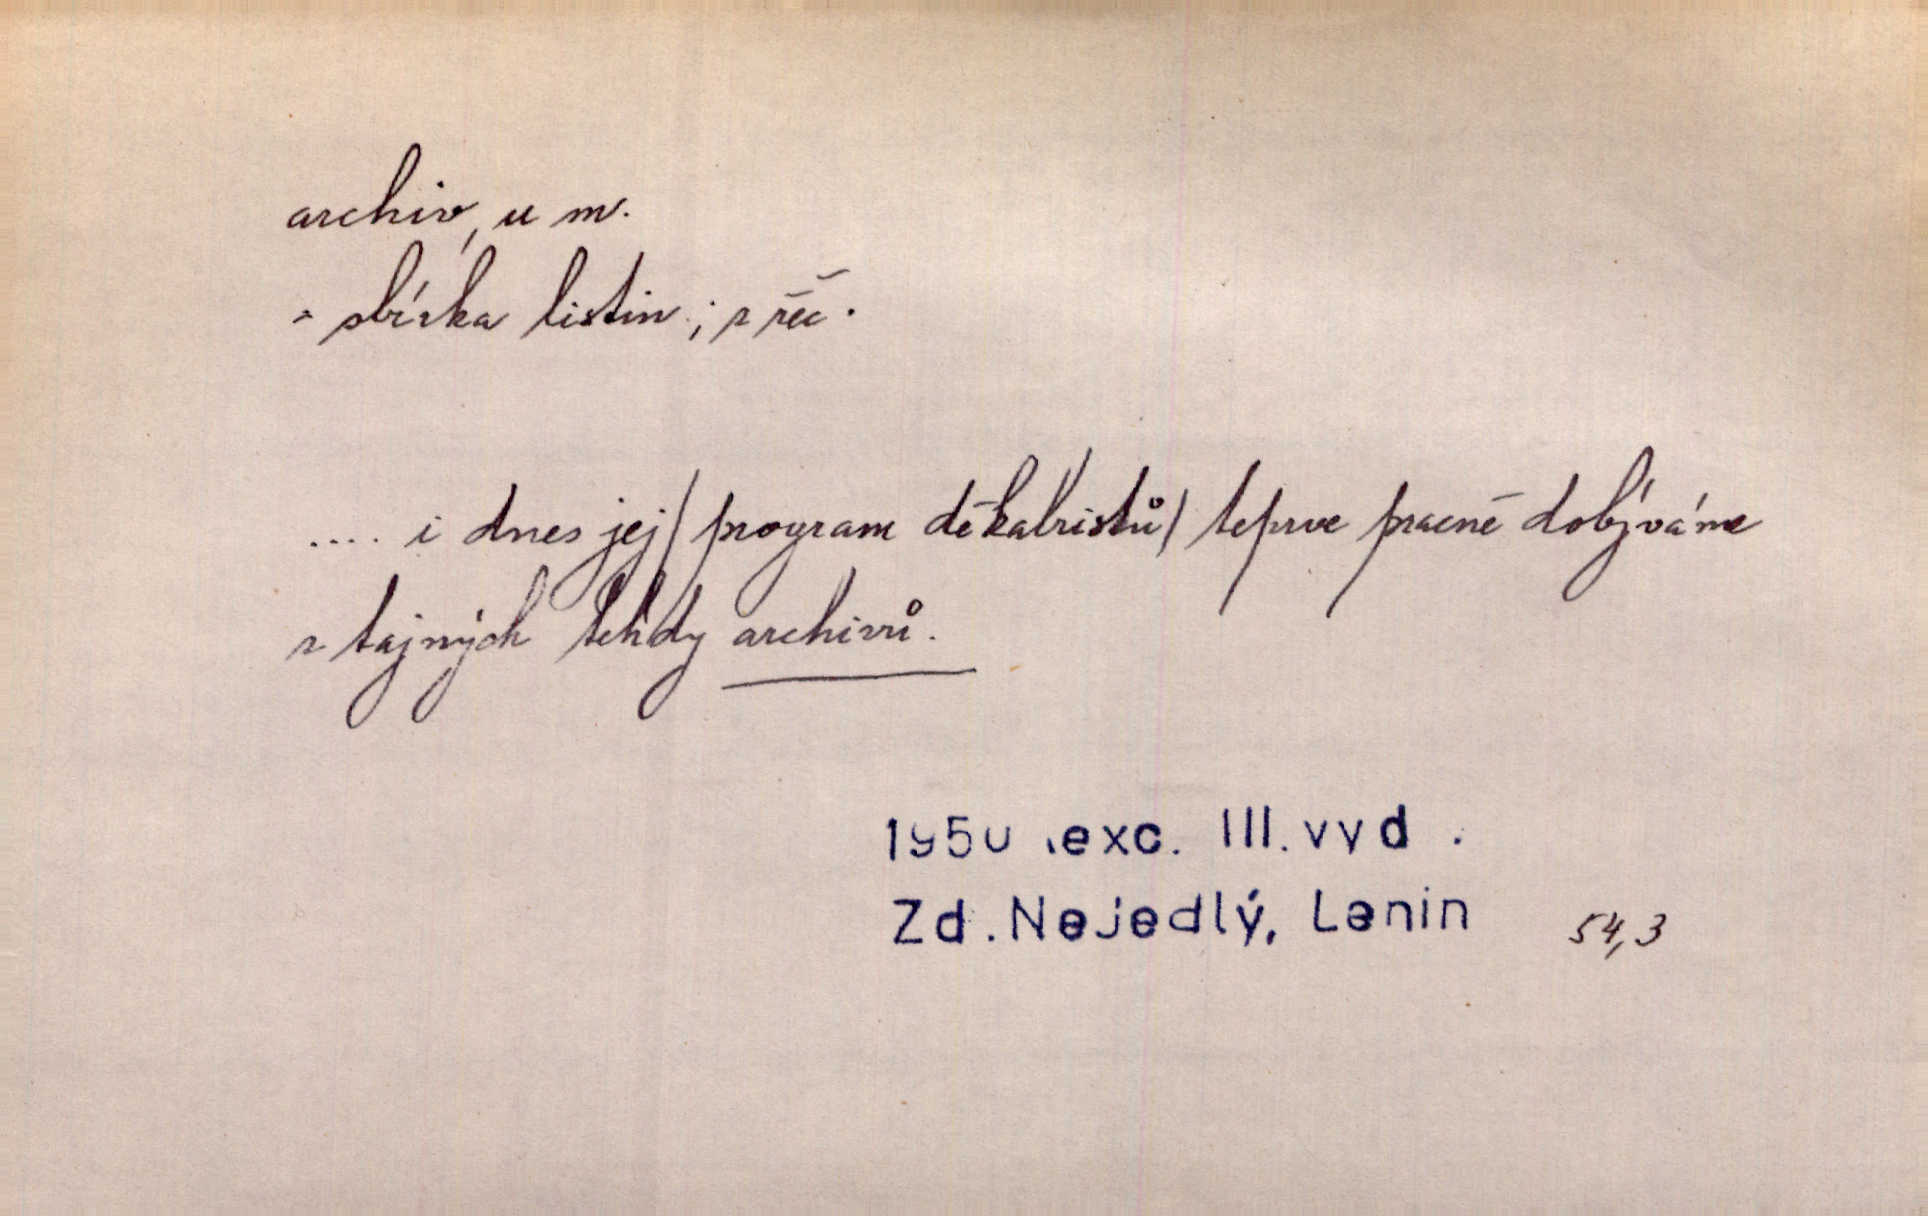 archiv, u m.
- sbírka listin; z řeč.
.... i dnes jej/program děkabristů/ teprve pracně dobýváme
z tajných tehdy archivů.
1950 .exc. III. vyd .
Zd. Nejedlý, Lenin 54,3